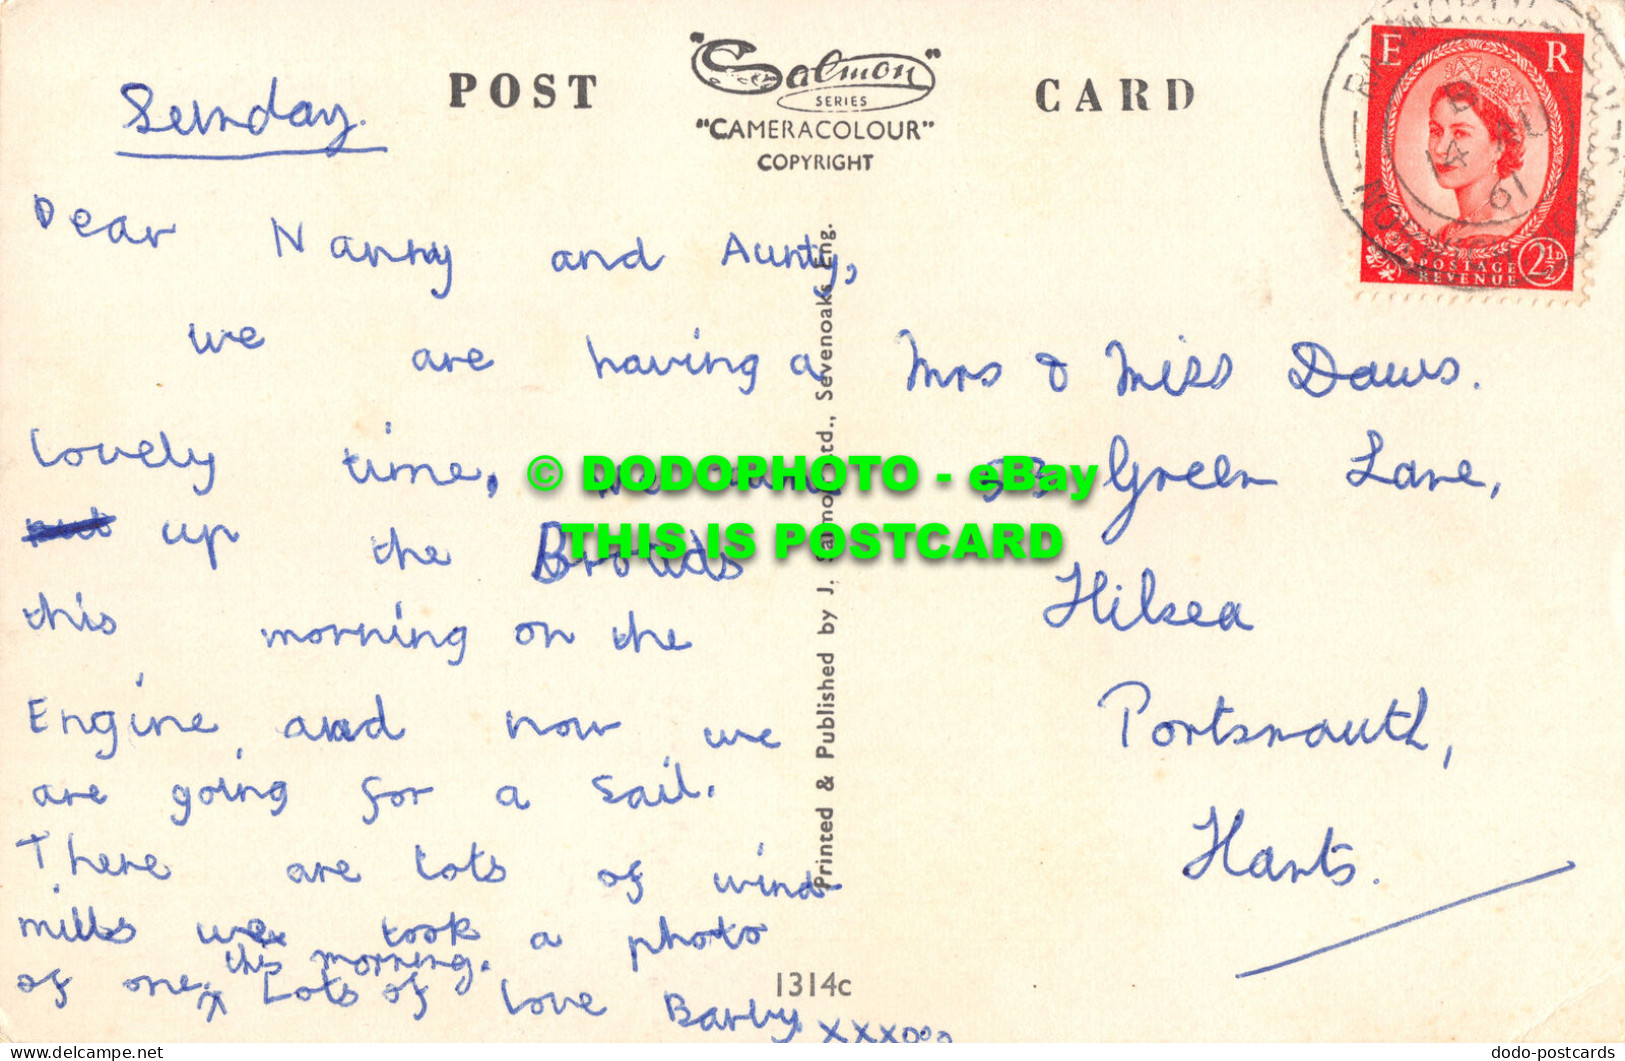 POST CARD
"Salmon"
SERIES
"CAMERACOLOUR"
COPYRIGHT
E R
POSTAGE
REVENUE
2½D
8 AU
61
Sunday.
Dear Nanny and Aunty,
we are having a
lovely time, we came
up the Broads
this morning on the
Engine, and now we
are going for a sail.
There are lots of wind
mills we took a photo
of one this morning. Lots of love Barby xxxooo
Mrs & Miss Daws.
53 Green Lane,
Hilsea
Portsmouth,
Hants.
Printed & Published by J. Salmon Ltd., Sevenoaks, Eng.
1314c
© DODOPHOTO - eBay
THIS IS POSTCARD
dodo-postcards
www.delcampe.net